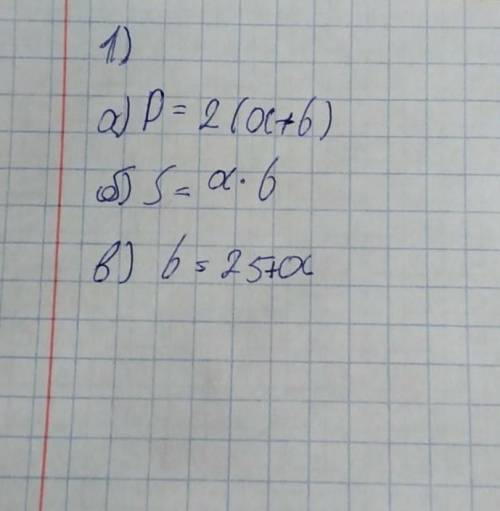 1)
а) P = 2(a+b)
б) S = a · b
в) b = 25+a